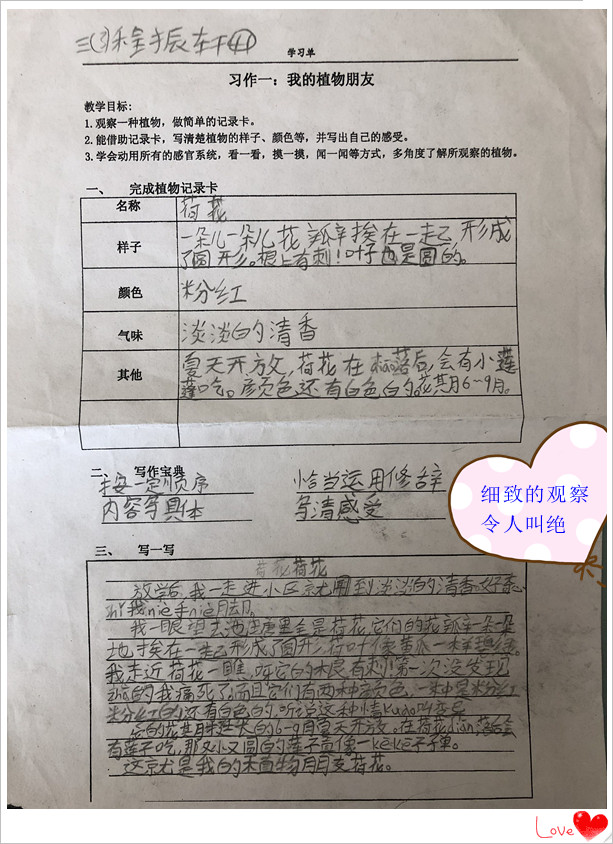 三(3)程振轩(41)
学习单
习作一：我的植物朋友
教学目标：
1.观察一种植物，做简单的记录卡。
2.能借助记录卡，写清楚植物的样子、颜色等，并写出自己的感受。
3.学会动用所有的感官系统，看一看，摸一摸，闻一闻等方式，多角度了解所观察的植物。
一、 完成植物记录卡
名称 荷花
样子 一朵儿一朵儿花瓣挨在一起，形成
了圆形。根上有刺！叶子也是圆的。
颜色 粉红
气味 淡淡的清香
其他 夏天开放，荷花在凋落后，会有小莲
蓬吃。颜色还有白色的。花其月6~9月。
二、 写作宝典
按一定顺序 恰当运用修辞
内容等具体 写清感受
细致的观察
令人叫绝
三、 写一写
荷花荷花
放学后，我一走进小区就闻到淡淡的清香，好奇
的我niè手niè脚。
我一眼望去池唐里全是荷花，它们的花瓣一朵一朵
地，挨在一起形成了圆形，荷叶像黄瓜一样碧绿。
我走近荷花一瞧，呀它的根有刺！第一次没发现
的我痛死了，而且它们有两种颜色，一种是粉红
粉红的还有白色的，所说这种情kuàng
的花其月 大的6-9月夏天开放。在荷花diāo落后会
有莲子吃，那又小又圆的莲子高像一kēkē子弹。
这就是我的植物朋友荷花。
Love